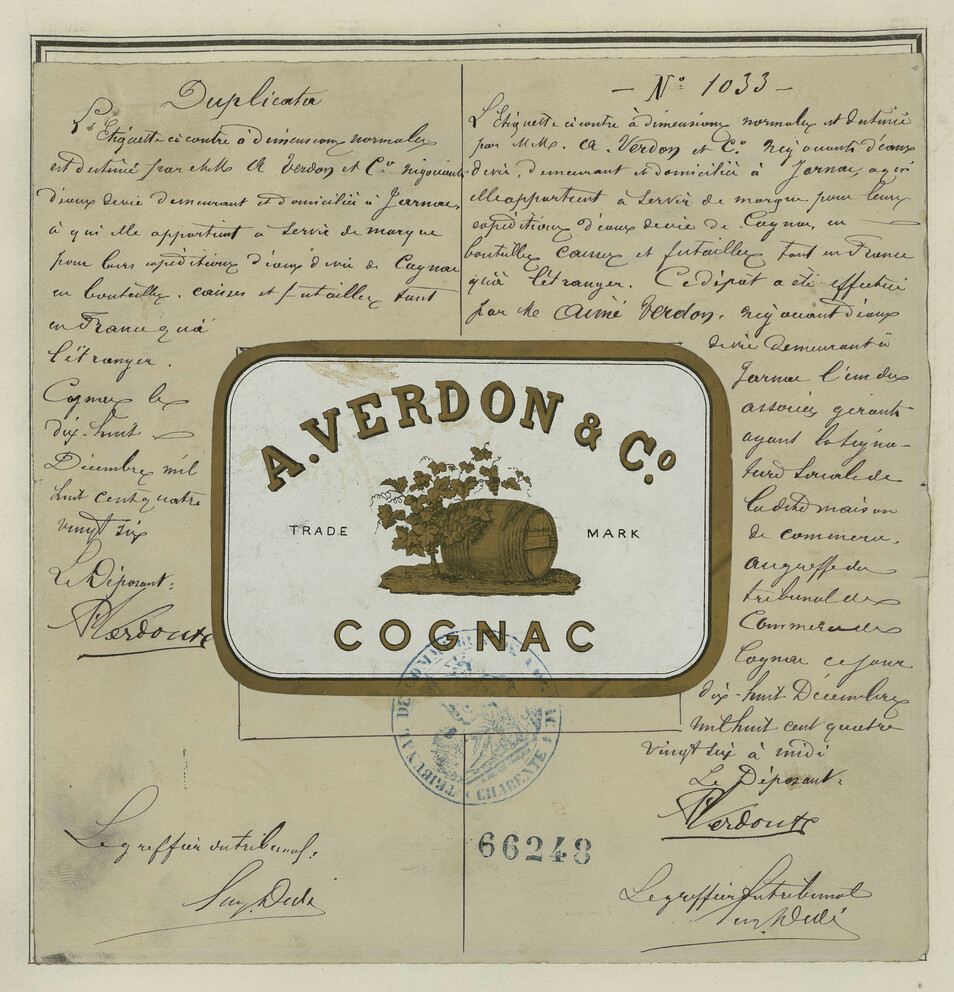 Duplicata
L'Etiquette ci contre à dimensions normales
est destinée par MM A Verdon et Co négociants
d'eaux de vie demeurant et domiciliés à Jarnac,
à qui elle appartient à servir de marque
pour leurs expéditions d'eaux de vie de Cognac
en bouteilles, caisses et futailles tant
en France qu'à
l'étranger.
Cognac le
dix-huit
Décembre mil
huit cent quatre
vingt six
Le Déposant:
Verdon
Le greffier du tribunal:
- No 1033 -
L'Etiquette ci contre à dimensions normales est destinée
par MM. A. Verdon et Co. négociants d'eaux
de vie, demeurant et domiciliés à Jarnac, à qui
elle appartient à servir de marque pour leurs
expéditions d'eaux de vie de Cognac, en
bouteilles caisses et futailles tant en France
qu'à l'étranger. Ce dépôt a été effectué
par M. Aimé Verdon, négociant d'eaux
de vie demeurant à
Jarnac l'un des
associés gérants
ayant la signa-
ture sociale de
la dite maison
de commerce,
au greffe du
tribunal de
Commerce de
Cognac ce jour
dix-huit Décembre
mil huit cent quatre
vingt six à midi
Le Déposant:
Verdon
Le greffier du tribunal
A. VERDON & Co.
TRADE MARK
COGNAC
TRIBUNAL DE COMMERCE
CHARENTE
66248